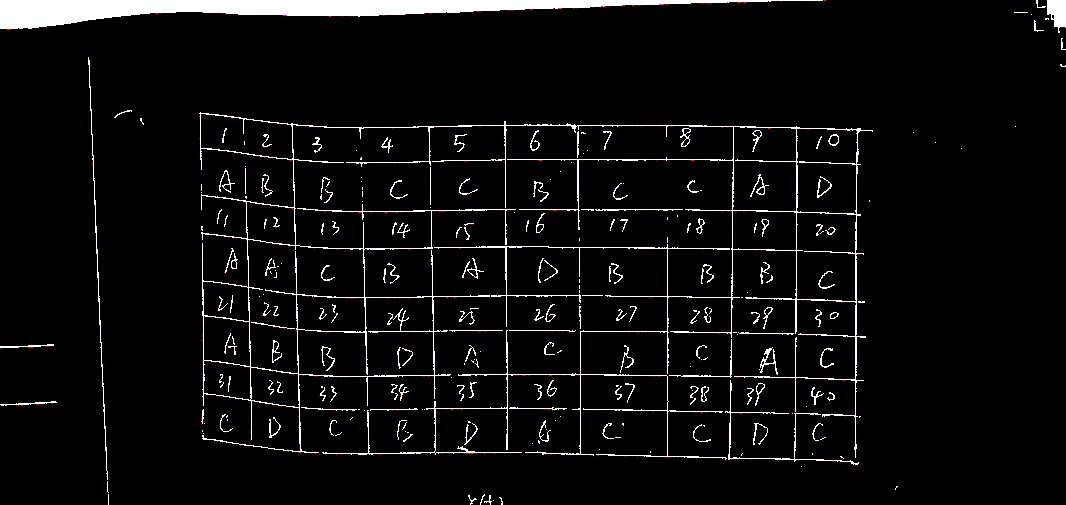 1 2 3 4 5 6 7 8 9 10
A B B C C B C C A D
11 12 13 14 15 16 17 18 19 20
A A C B A D B B B C
21 22 23 24 25 26 27 28 29 30
A B B D A C B C A C
31 32 33 34 35 36 37 38 39 40
C D C B D A C C D C